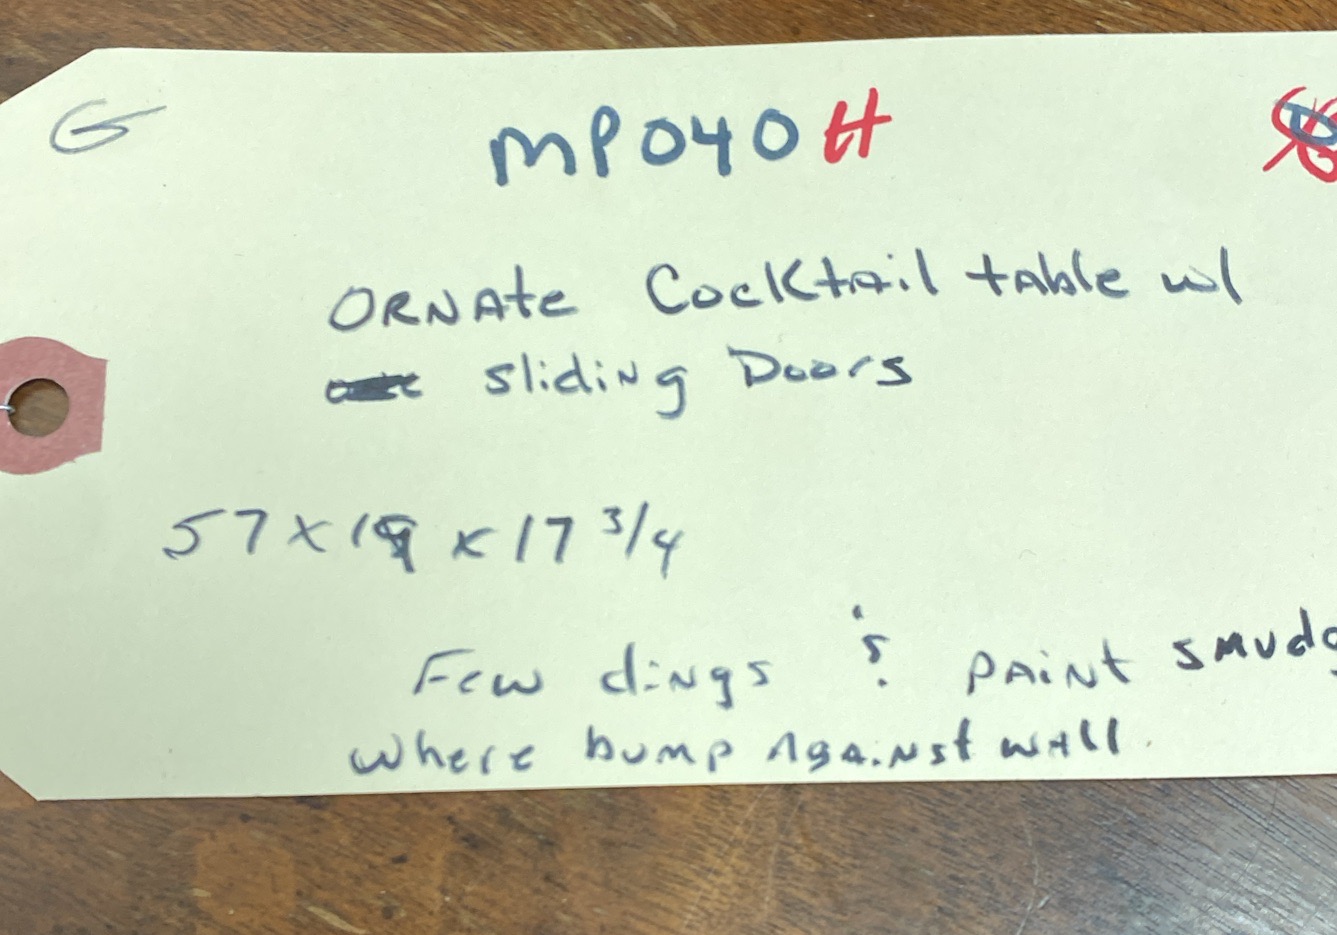 G
MP040H
ORNAte Cocktail tAble w/
sliding Doors
57 x 19 x 17 3/4
Few dings & PAiNt smudg
where bump AgaiNst wAll.